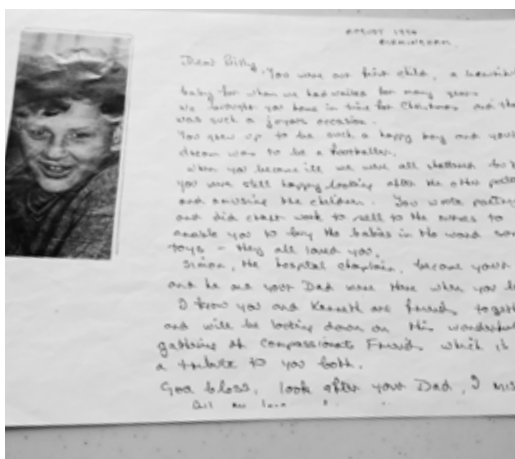 AUGUST 1994
BIRMINGHAM
Dear Billy,
You were our first child, a beautiful
baby for whom we had waited for many years
We brought you home in time for Christmas and
was such a joyous occasion.
You grew up to be such a happy boy and your
dream was to be a footballer.
When you became ill we were all shattered but
you were still happy looking after the other
and amusing the children. You wrote poetry
and did craft work to sell to the nurses to
enable you to buy the babies in the ward some
toys - they all loved you.
Simon, the hospital chaplain, became your
and he and your Dad were there when you
I know you and Kenneth are friends together
and will be looking down on this wonderful
gathering of Compassionate Friends which is
a tribute to you both.
God bless, look after your Dad, I miss
All my love